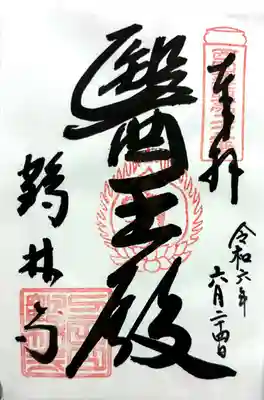 奉拝
令和六年
六月二十四日
醫王殿
鶴林寺